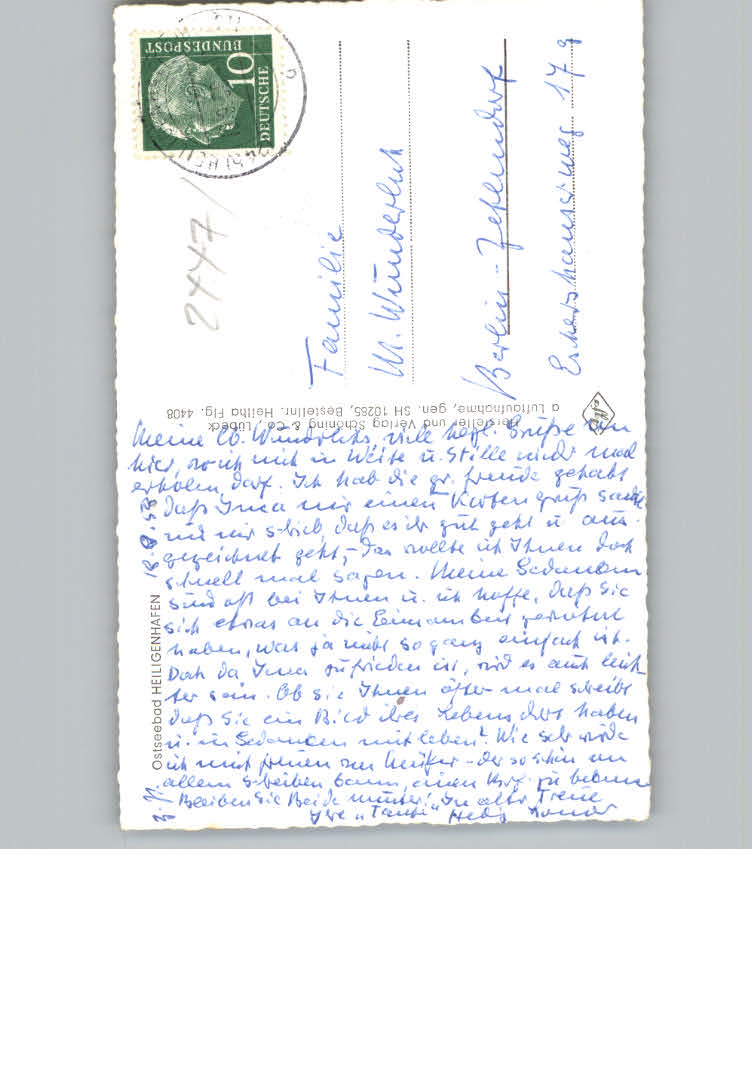 Meine lb. Wunderlichs, viele herzl. Grüße von
hier, wo ich mich in Weite u. Stille mal
erholen darf. Ich hab die gr. Freude gehabt
daß Inea mir einen Kartengruß sandte
und mir schrieb, daß es ihr gut geht u. aus-
gezeichnet geht, - das wollte ich Ihnen doch
schnell mal sagen. Meine Gedanken
sind oft bei Ihnen u. ich hoffe, daß Sie
sich etwas an die Einsamkeit gewöhnt
haben, was ja nicht so ganz einfach ist.
Doch da Inea zufrieden ist, wird es auch leich
ter sein. Ob sie Ihnen öfter mal schreibt
daß Sie ein Bild ihres Lebens dort haben
u. in Gedanken mitleben? Wie sehr würde
ich mich freuen - der so schön von
allem schreiben kann, einen Brf. zu bekomm
Bleiben Sie Beide munter! In alter Treue
Ihre "Tante" Hedy
18.8.58
z. Zt.
Ostseebad HEILIGENHAFEN
Hersteller und Verlag Schöning & Co., Lübeck
a Luftaufnahme, gen. SH 10285, Bestellnr. Heilha Flg. 4408
Familie
W. Wunderlich
Berlin-Zehlendorf
Eschershauserweg 17 g
2447/
DEUTSCHE
BUNDESPOST
10